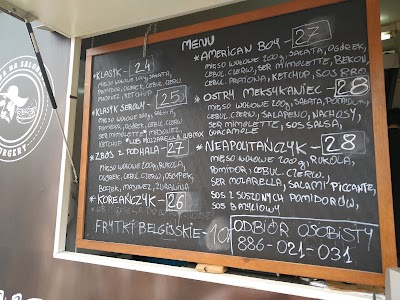 MENU
*KLASYK - 24
MIĘSO WOŁOWE 200g, SAŁATA,
POMIDOR, OGÓREK, CEBUL. CZERW.
MAJONEZ, KETCHUP
*KLASYK SEROWY - 25
MIĘSO WOŁOWE 200g, SAŁATA,
POMIDOR, OGÓREK, CEBUL. CZERW.
SER MIMOLETTE, MAJONEZ,
KETCHUP *LUB MOZZARELLA LUB MIX
*ZBÓJ Z PODHALA - 27
MIĘSO WOŁOWE 200g, RUKOLA,
OGÓREK, CEBUL. CZERW., OSCYPEK,
BOCZEK, MAJONEZ, ŻURAWINA
*KOREAŃCZYK - 26
FRYTKI BELGIJSKIE - 10
*AMERICAN BOY - 27
MIĘSO WOŁOWE 200g, SAŁATA, OGÓREK,
CEBUL. CZERW., SER MIMOLETTE, BEKON,
CEBUL. PRAŻONA, KETCHUP, SOS BBQ
*OSTRY MEKSYKANIEC - 28
MIĘSO WOŁOWE 200g, SAŁATA, POMIDOR,
CEBUL. CZERW., JALAPENO, NACHOSY,
SER MIMOLETTE, SOS SALSA,
GUACAMOLE
*NEAPOLITAŃCZYK - 28
MIĘSO WOŁOWE 200g, RUKOLA,
POMIDOR, CEBUL. CZERW.,
SER MOZARELLA, SALAMI PICCANTE,
SOS Z SUSZONYCH POMIDORÓW,
SOS BAZYLIOWY
ODBIÓR OSOBISTY
886-021-031